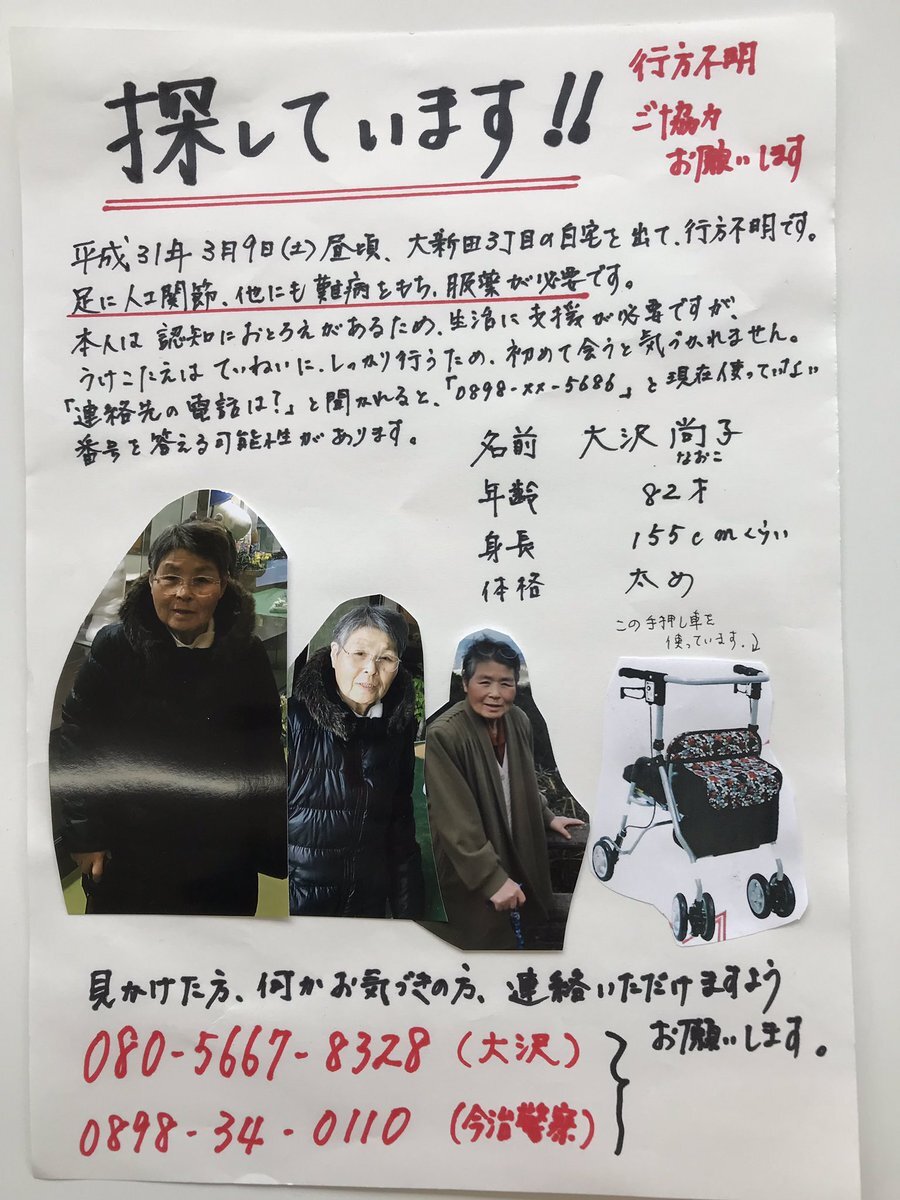 探しています!!
行方不明
ご協力
お願いします
平成31年3月9日(土)昼頃、大新田3丁目の自宅を出て、行方不明です。
足に人工関節、他にも難病をもち、服薬が必要です。
本人は認知におとろえがあるため、生活に支援が必要ですが、
うけこたえはていねいに、しっかり行うため、初めて会うと気づかれません。
「連絡先の電話は?」と聞かれると、「0898-××-5686」と現在使っていない
番号を答える可能性があります。
名前 大沢 尚子
なおこ
年齢 82才
身長 155cmくらい
体格 太め
この手押し車を
使っています。
見かけた方、何かお気づきの方、連絡いただけますよう
お願いします。
080-5667-8328 (大沢)
0898-34-0110 (今治警察)